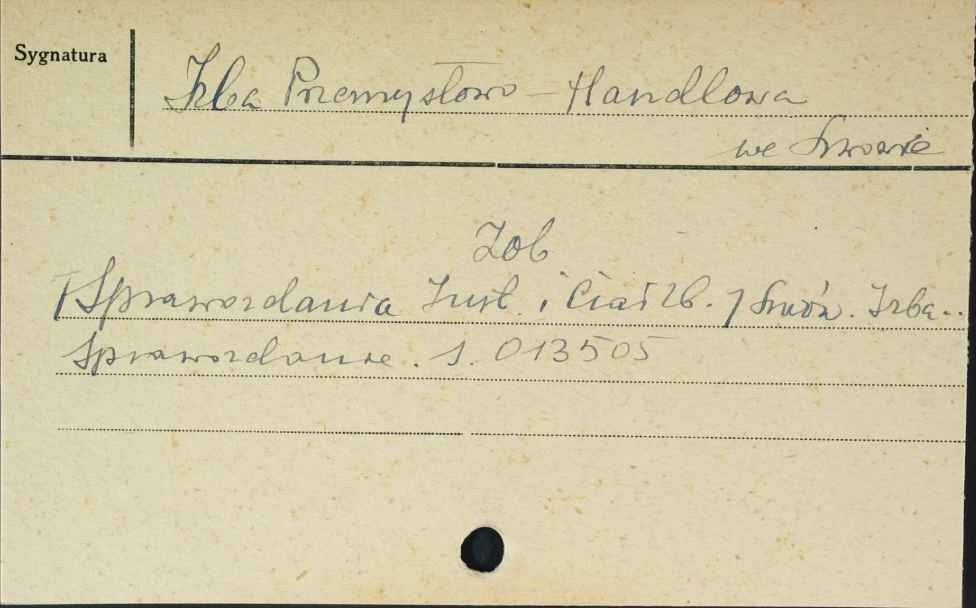 Sygnatura
Izba Przemysłowo-Handlowa
we Lwowie
Zob
[Sprawozdania Inst. i Ciał Zb.] Lwów. Izba..
Sprawozdanie. S. 013505